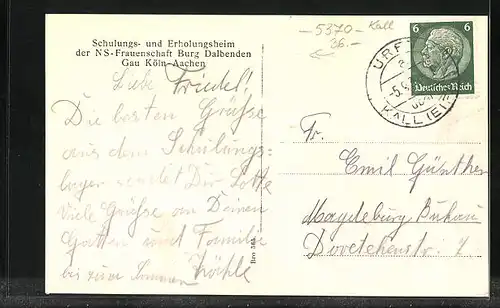 Schulungs- und Erholungsheim
der NS-Frauenschaft Burg Dalbenden
Gau Köln-Aachen
Liebe Friedel!
Die besten Grüße
aus dem Schulungs-
lager sendet Dir Lotte
Viele Grüße an Deinen
Gatten und Familie
bis zum
-5370- Kall
36.-
6 6
Deutsches Reich
URFT
KALL (EIFEL)
Fr.
Emil Günther
Magdeburg Bukau
Dorotheenstr. 7